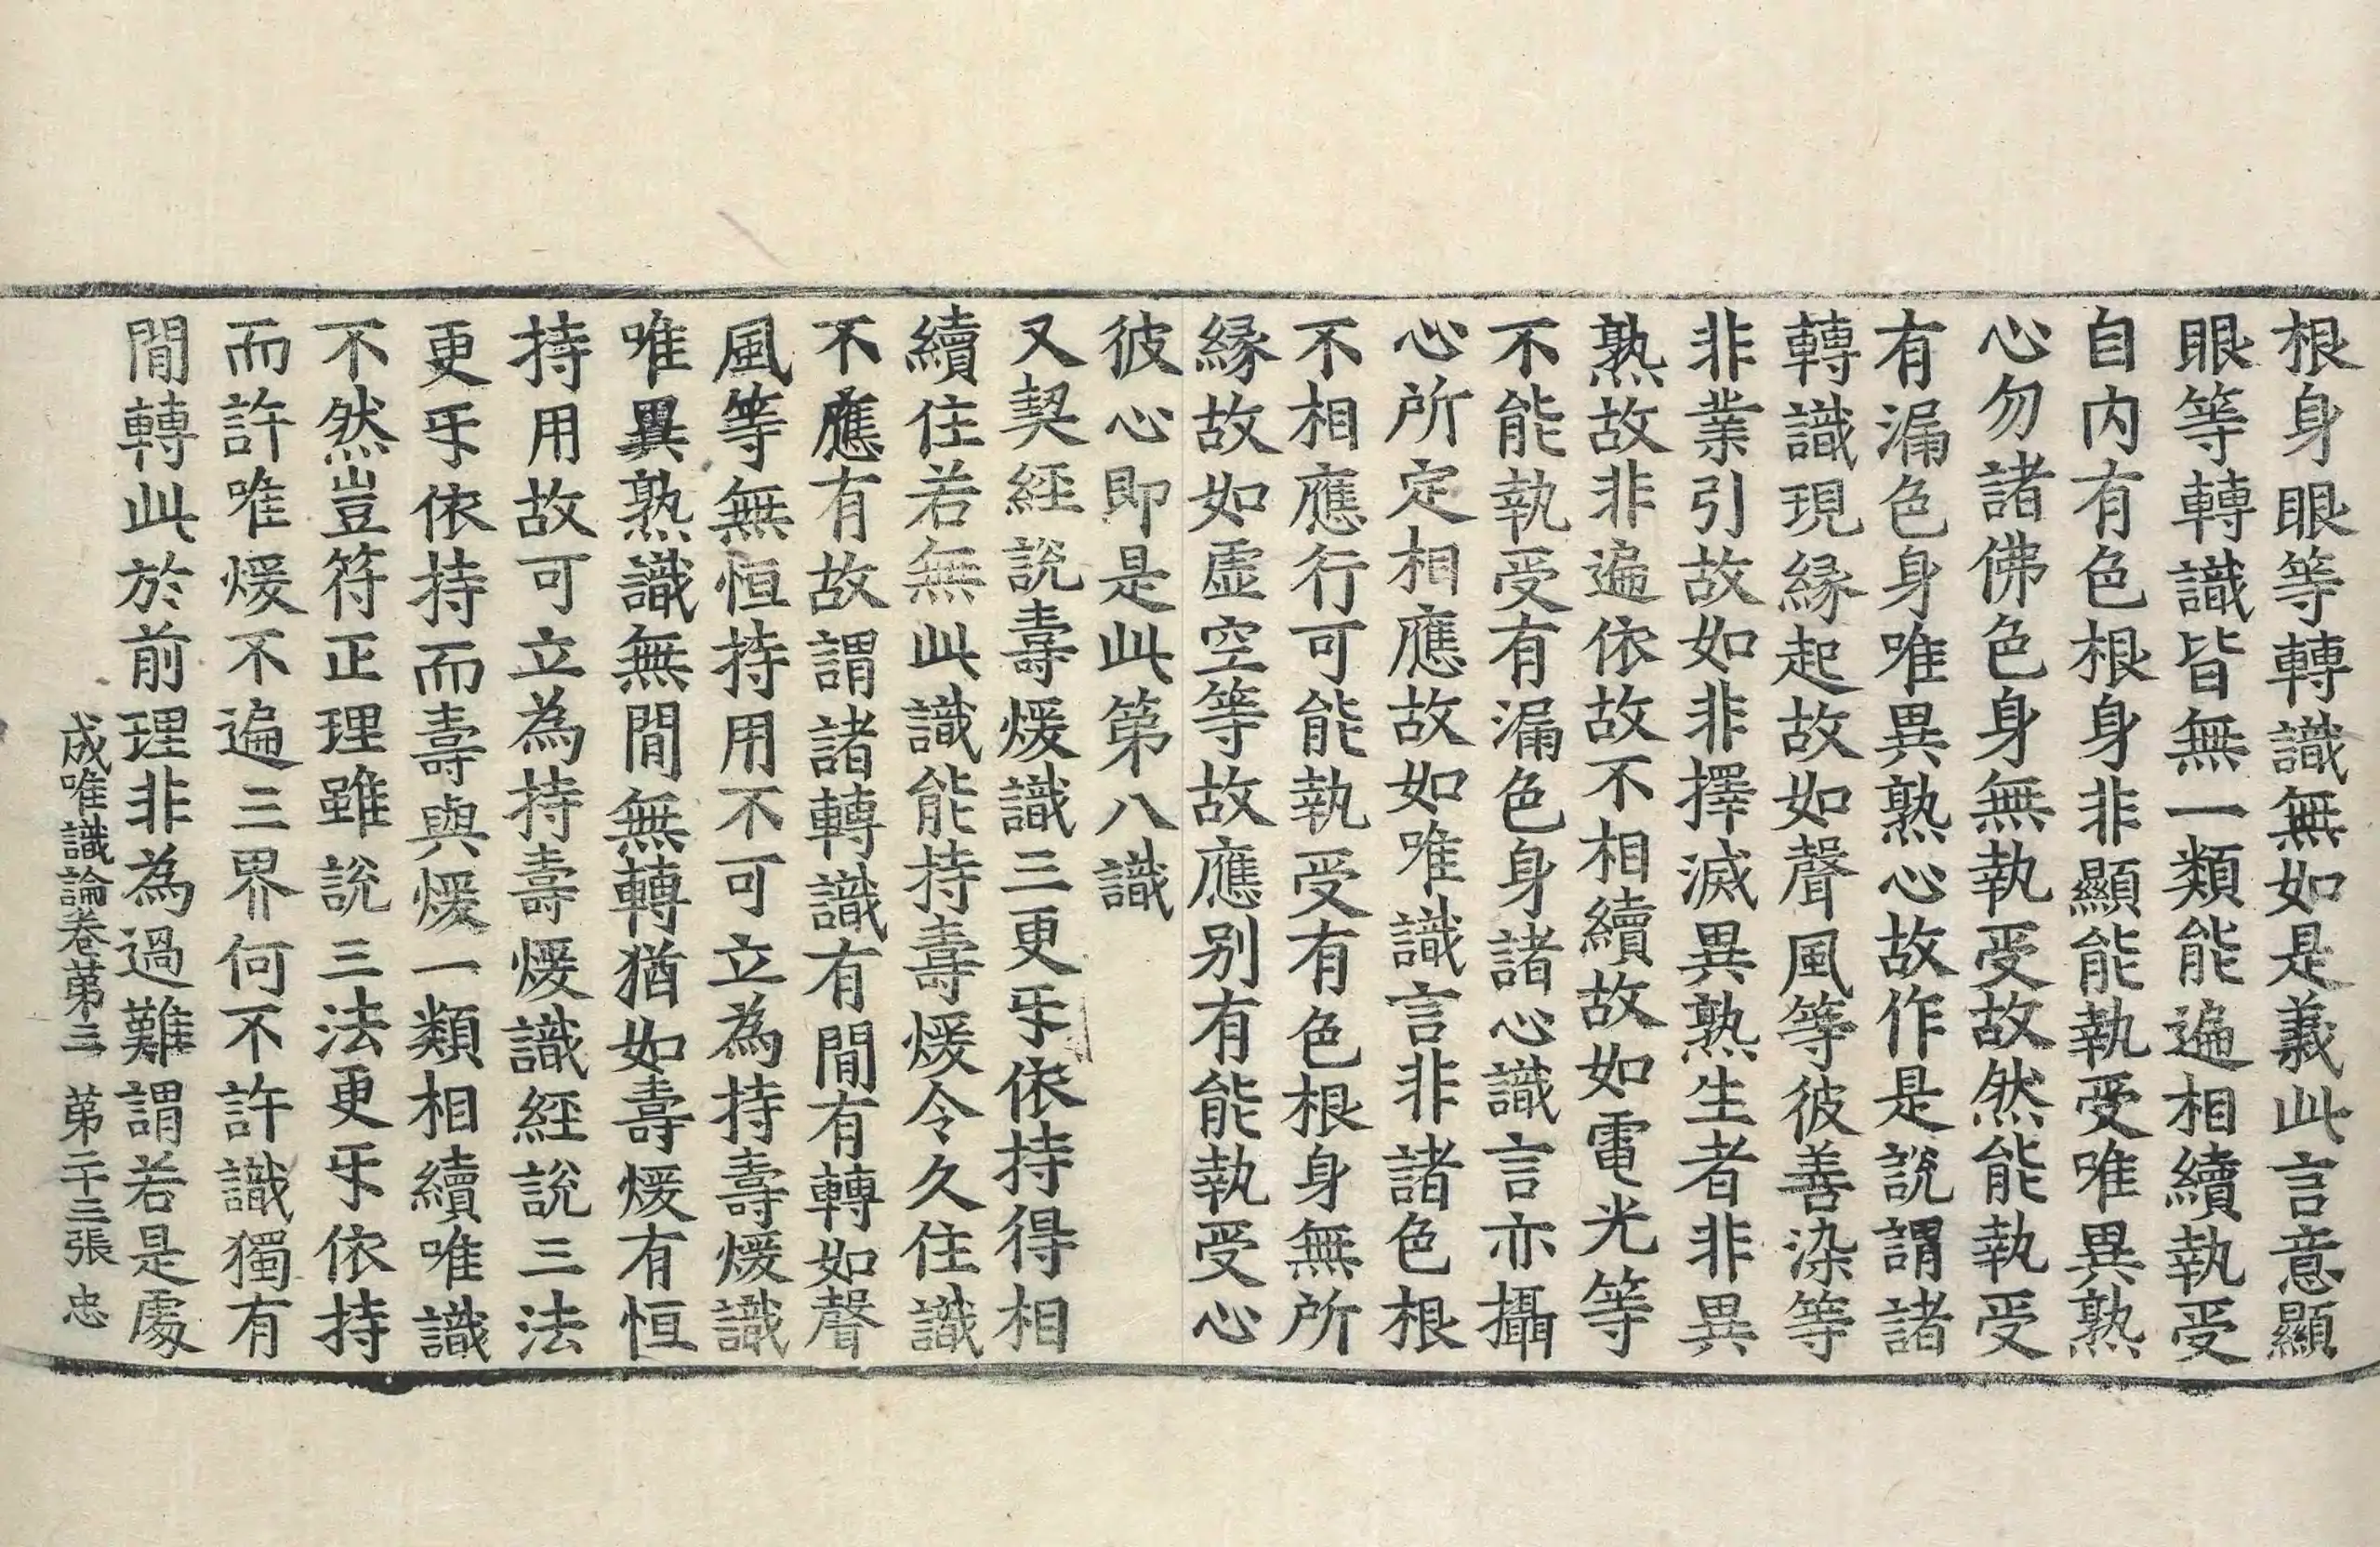 根身眼等轉識無如是義此言意顯
眼等轉識皆無一類能遍相續執受
自内有色根身非顯能執受唯異熟
心勿諸佛色身無執受故然能執受
有漏色身唯異熟心故作是說謂諸
轉識現緣起故如聲風等彼善染等
非業引故如非擇滅異熟生者非異
熟故非遍依故不相續故如電光等
不能執受有漏色身諸心識言亦攝
心所定相應故如唯識言非諸色根
不相應行可能執受有色根身無所
緣故如虛空等故應別有能執受心
彼心即是此第八識
又契經說壽煖識三更㸦依持得相
續住若無此識能持壽煖令久住識
不應有故謂諸轉識有間有轉如聲
風等無恒持用不可立為持壽煖識
唯異熟識無間無轉猶如壽煖有恒
持用故可立為持壽煖識經說三法
更㸦依持而壽與煖一類相續唯識
不然豈符正理雖說三法更㸦依持
而許唯煖不遍三界何不許識獨有
間轉此於前理非為過難謂若是處
成唯識論卷苐三 苐二十三張 忠